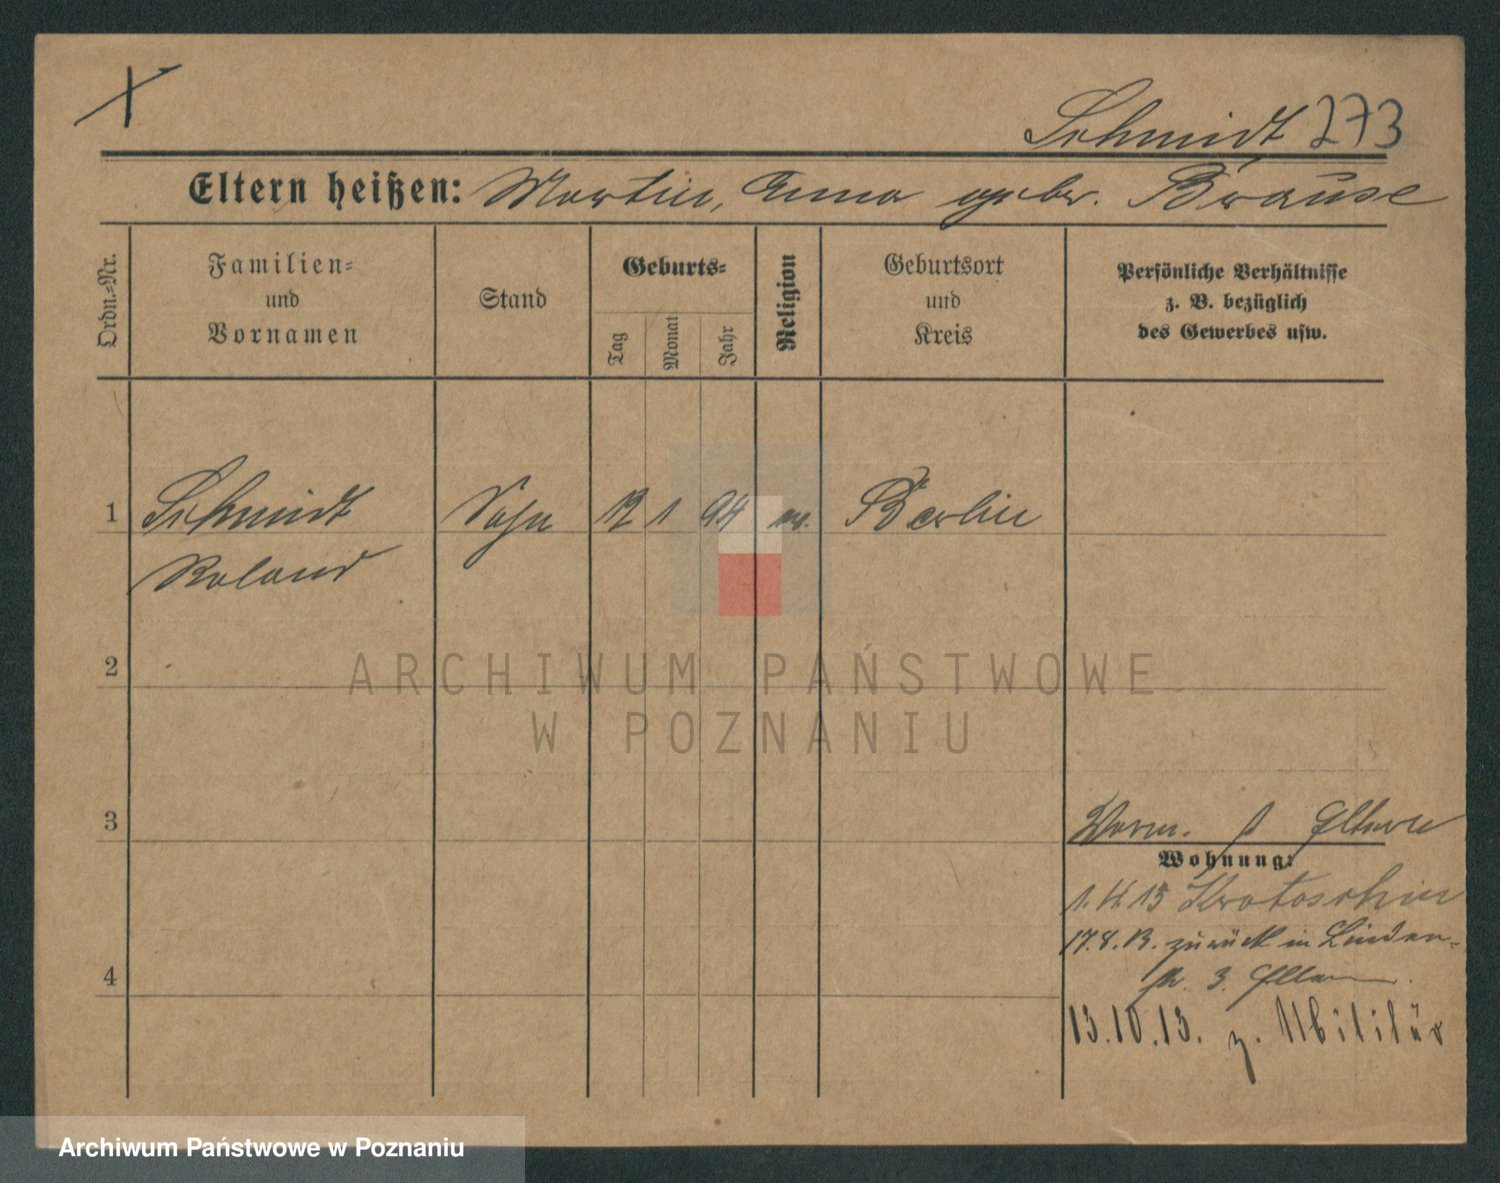 Schmidt 273
Eltern heißen: Martin, Anna gebr. Brause
Ordn.-Nr.
Familien-
und
Vornamen
Stand
Geburts-
Tag
Monat
Jahr
Religion
Geburtsort
und
Kreis
Persönliche Verhältnisse
z. B. bezüglich
des Gewerbes usw.
1 Schmidt Sohn 12 1 94 ev. Berlin
Roland
2
ARCHIWUM PAŃSTWOWE
W POZNANIU
3
Eltern
Wohnung:
1.4.13 Krotoschin
17.8.13. zurück in Linden-
4
13.10.13. z. Militär
Archiwum Państwowe w Poznaniu